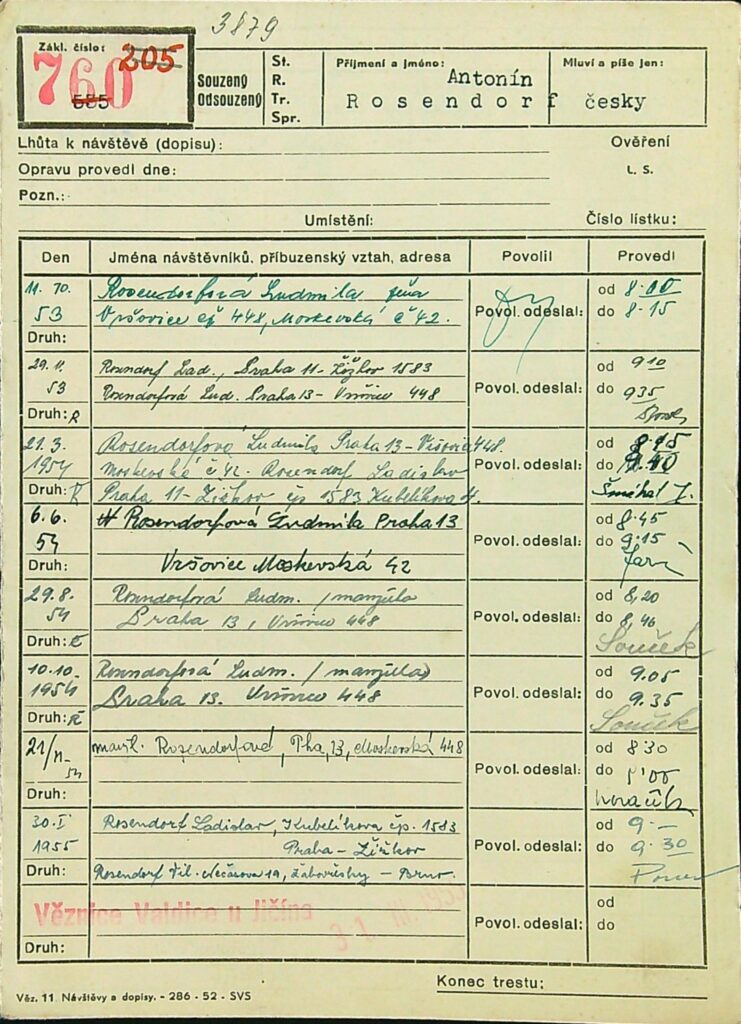 3879
Zákl. číslo:
760 205
555
Souzený
Odsouzený
St.
R.
Tr.
Spr.
Příjmení a jméno:
Antonín
Rosendorf
Mluví a píše jen:
česky
Lhůta k návštěvě (dopisu):
Ověření
Opravu provedl dne:
L. S.
Pozn.:
Umístění:
Číslo lístku:
Den Jména návštěvníků, příbuzenský vztah, adresa Povolil Provedl
11. 10. Rosendorfová Ludmila, žena od 8.00
53 Vršovice čp 448, Moskevská č 42. Povol. odeslal: do 8-15
Druh:
29. 11. Rosendorf Lad., Praha 11 - Žižkov 1583 od 9 10
53 Rosendorfová Lud. Praha 13 - Vršovice 448 Povol. odeslal: do 9 35
Druh: R
21. 3. Rosendorfová Ludmila Praha 13 - Vršovice 448. od 8.15
1954 Moskevská č 42. Rosendorf Ladislav Povol. odeslal: do 9.40
Druh: R Praha 11 - Žižkov čp 1583 Kubelíkova
6. 6. Rosendorfová Ludmila Praha 13 od 8.45
54 Povol. odeslal: do 9.15
Druh: Vršovice Moskevská 42
29. 8. Rosendorfová Ludm. /manželka od 8,20
54 Praha 13, Vršovice 448 Povol. odeslal: do 8,46
Druh: R Souček
10. 10. Rosendorfová Ludm. /manželka od 9.05
1954 Praha 13. Vršovice 448 Povol. odeslal: do 9.35
Druh: R Souček
21/11 manž. Rosendorfová, Pha, 13, Moskevská 448 od 8.30
54 Povol. odeslal: do
Druh:
30. I. Rosendorf Ladislav, Kubelíkova čp. 1583 od 9.-
1955 Praha - Žižkov Povol. odeslal: do 9.30
Druh: Rosendorf Vil. Nečasova 19, Žabovřesky - Brno.
Věznice Valdice u Jičína
31. III. 1955
od
Povol. odeslal: do
Druh:
Konec trestu:
Věz. 11. Návštěvy a dopisy. - 286 - 52 - SVS